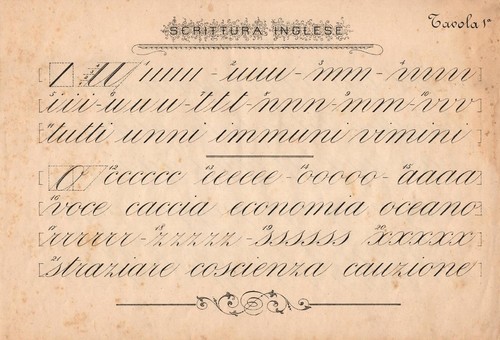 SCRITTURA INGLESE
Tavola 1a
1 ıııııı - 2 uuuu - 3 mm - 4 nnnn
5 iii - 6 uuu - 7 ttt - 8 nnn - 9 mm - 10 vvv
11 tutti unni immuni vimini
o 12 cccccc 13 eeeeee - 14 ooooo - 15 aaaa
16 voce caccia economia oceano
17 rrrrrr - 18 zzzzz - 19 ssssss 20 xxxxx
21 straziare coscienza cauzione